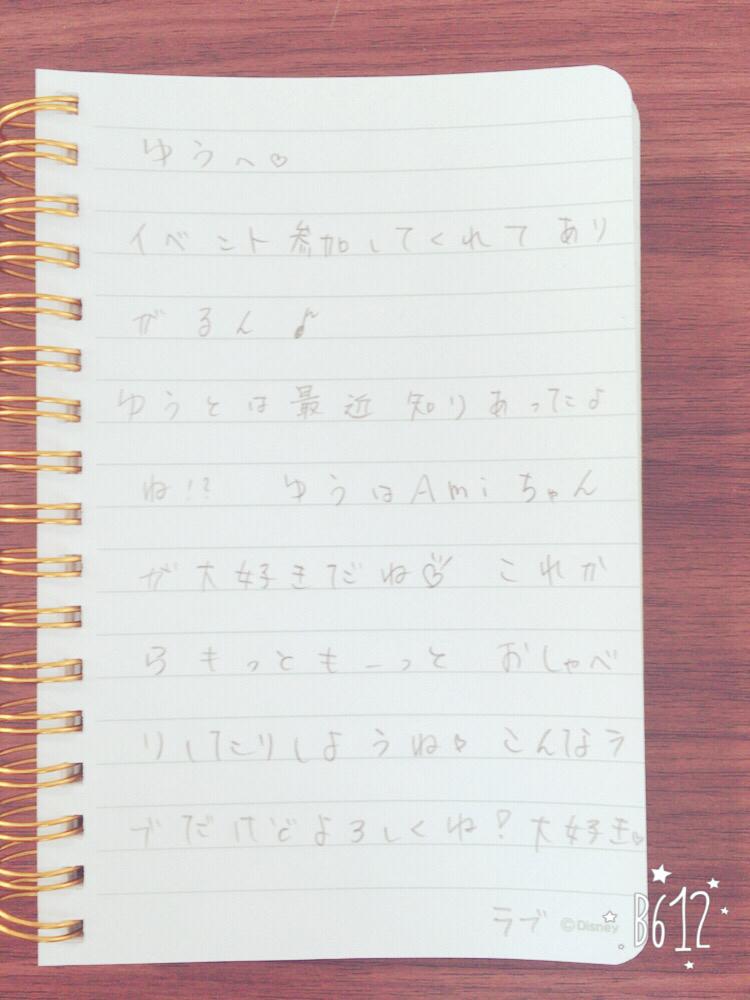 ゆうへ♡
イベント参加してくれてあり
がるん♪
ゆうとは最近知りあったよ
ね!? ゆうはAmiちゃん
が大好きだね♡ これか
らもっともーっと おしゃべ
りしてこりしようね♡ こんなラ
ブだけどよろしくね!大好き♡
ラブ ©Disney
B612